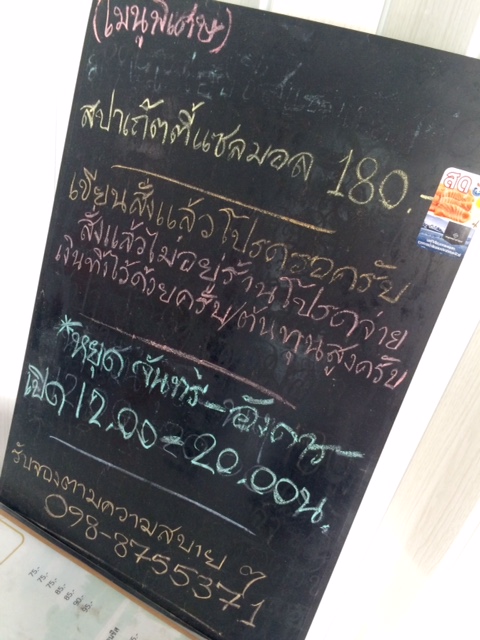 (เมนูพิเศษ)
สปาเก็ตตี้แซลมอล 180.-
เขียนสั่งแล้วโปรดรอครับ
สั่งแล้วไม่อยู่ร้านโปรดจ่าย
เงินทิ้งไว้ด้วยครับ/ต้นทุนสูงครับ
*หยุด จันทร์-อังคาร-
เปิด 12.00-20.00น.
รับจองตามความสบาย ๆ
098-8755371
สด
75.-
75.-
75.-
85.-
85.-
90.-
95.-